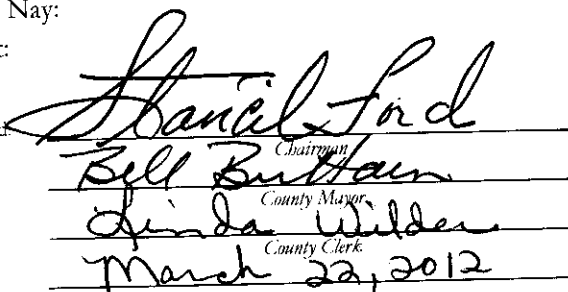 Nay:
t:
Stancil Ford
Chairman
Bill Brittain
County Mayor
Linda Wilder
County Clerk
March 22, 2012